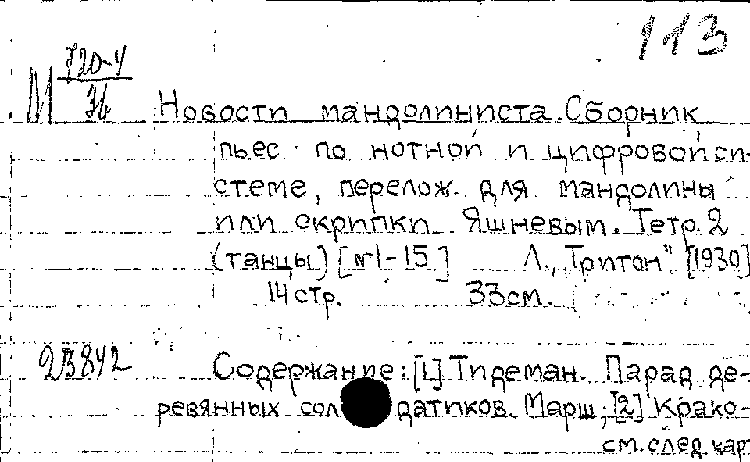 113
М 720-4
76
Новости мандолиниста. Сборник
пьес по нотной и цифровой си-
стеме, перелож. для мандолины
или скрипки Яшневым. Тетр. 2
(танцы) [№1-15] Л., „Тритон" [1930]
14 стр. 33 см.
23842 Содержание: [1] Тидеман. Парад де-
ревянных солдатиков. Марш; [2] Крако-
см. след. кар